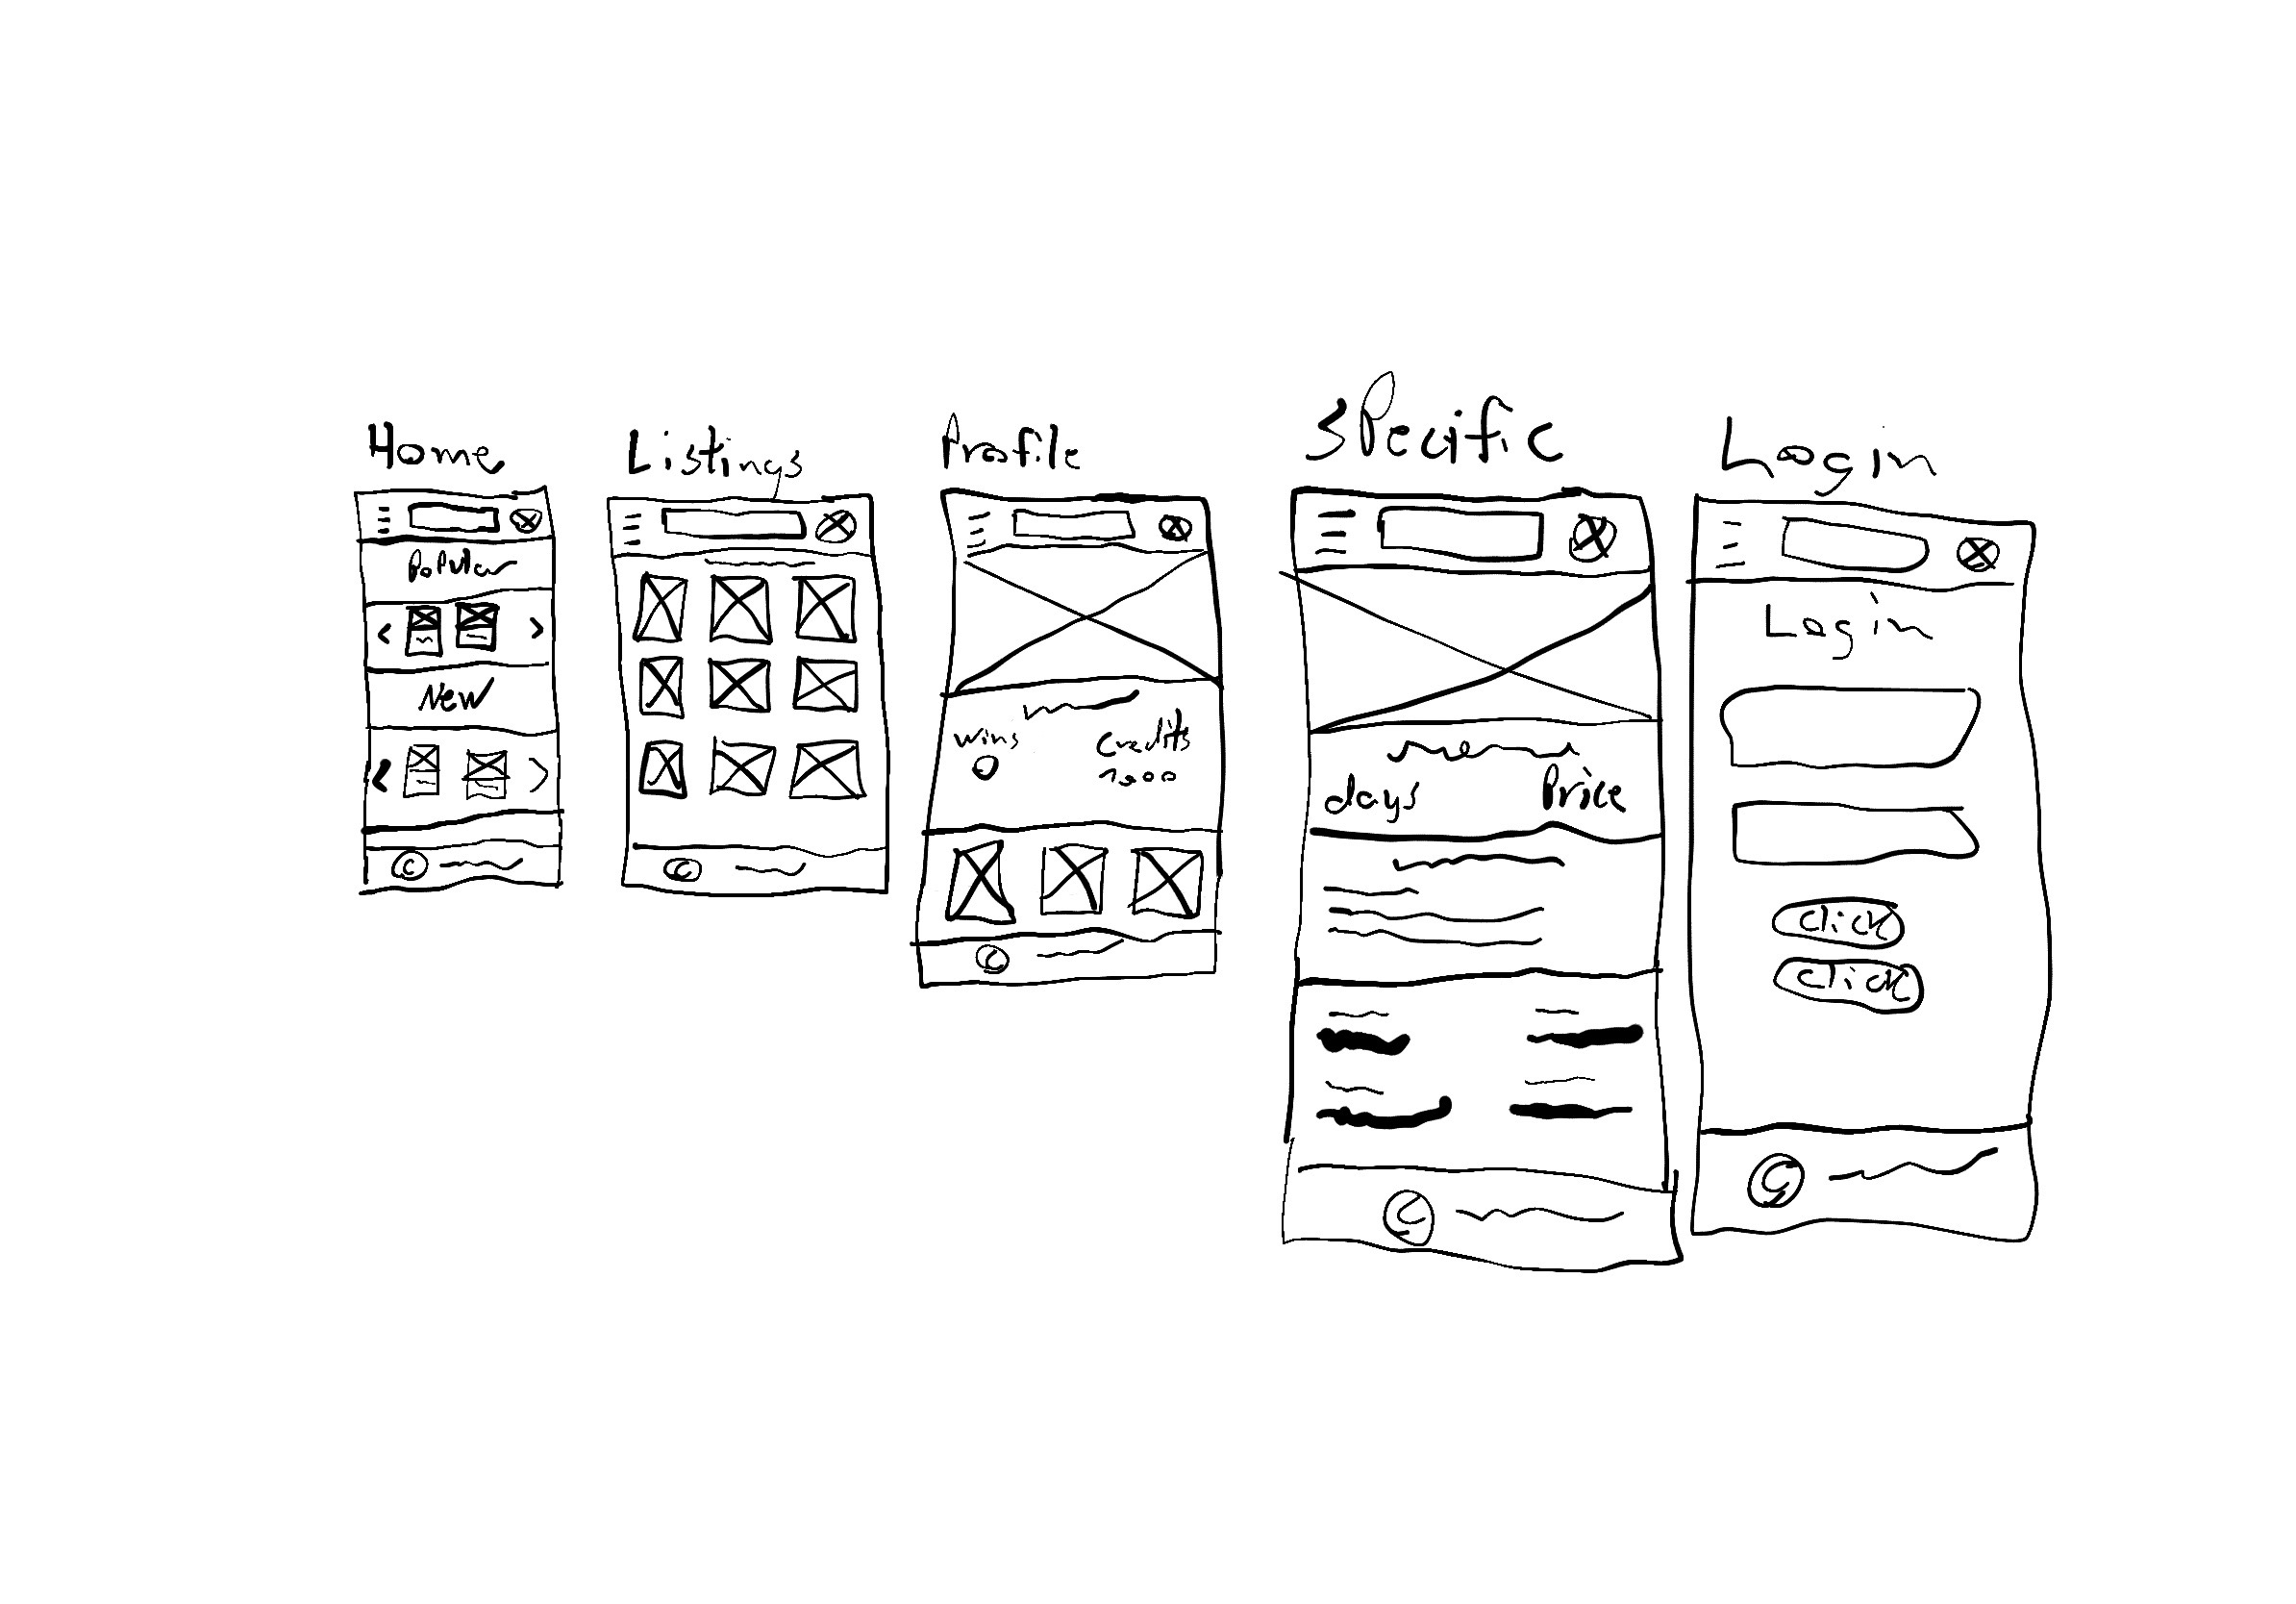 Home
Popular
New
C
Listings
C
Profile
wins
0
Credits
1000
C
SPecific
days
Price
C
Login
Login
Click
Click
C